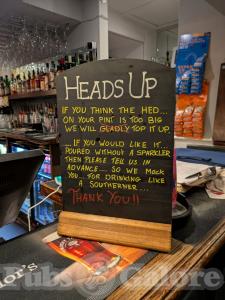 HEADS UP
IF YOU THINK THE HED....
ON YOUR PINT IS TOO BIG
WE WILL GLADLY TOP IT UP.
.... IF YOU WOULD LIKE IT..
POURED WITHOUT A SPARKLER
THEN PLEASE TELL US IN
ADVANCE.... SO WE MOCK
YOU... FOR DRINKING LIKE
A SOUTHERNER....
THANK YOU!!
Pubs Galore